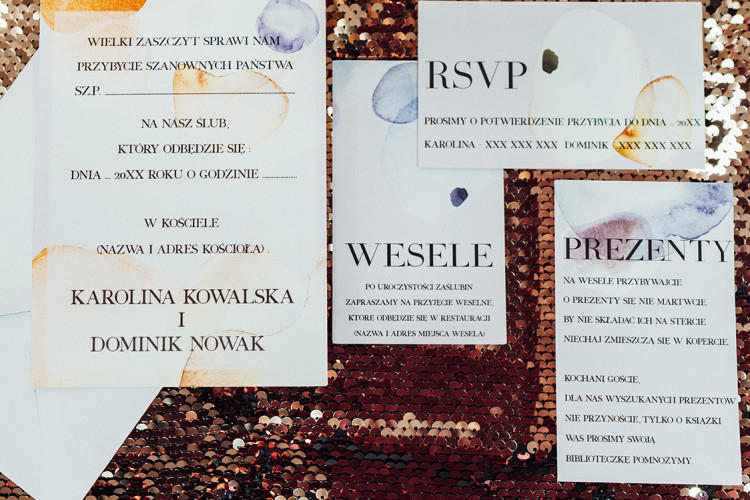 WIELKI ZASZCZYT SPRAWI NAM
PRZYBYCIE SZANOWNYCH PAŃSTWA
SZ.P.
NA NASZ ŚLUB,
KTÓRY ODBĘDZIE SIĘ :
DNIA ... 20XX ROKU O GODZINIE
W KOŚCIELE
(NAZWA I ADRES KOŚCIOŁA) .
KAROLINA KOWALSKA
I
DOMINIK NOWAK
WESELE
PO UROCZYSTOŚCI ZAŚLUBIN
ZAPRASZAMY NA PRZYJĘCIE WESELNE,
KTÓRE ODBĘDZIE SIĘ W RESTAURACJI
(NAZWA I ADRES MIEJSCA WESELA)
RSVP
PROSIMY O POTWIERDZENIE PRZYBYCIA DO DNIA ... 20XX
KAROLINA - XXX XXX XXX DOMINIK - XXX XXX XXX
PREZENTY
NA WESELE PRZYBYWAJCIE
O PREZENTY SIĘ NIE MARTWCIE.
BY NIE SKŁADAĆ ICH NA STERCIE
NIECHAJ ZMIESZCZĄ SIĘ W KOPERCIE.
KOCHANI GOŚCIE,
DLA NAS WYSZUKANYCH PREZENTÓW
NIE PRZYNOŚCIE, TYLKO O KSIĄŻKI
WAS PROSIMY SWOJĄ
BIBLIOTECZKĘ POMNOŻYMY.